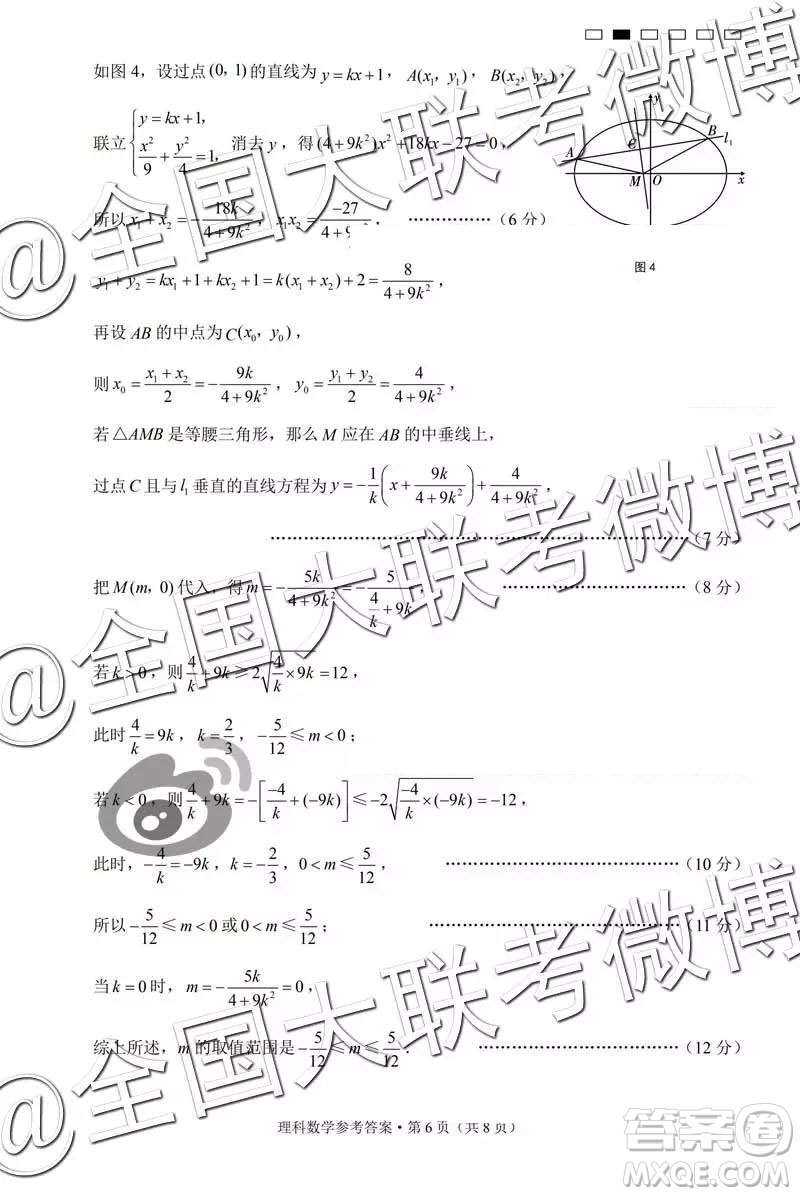 如图 4，设过点(0，1)的直线为 y=kx+1，A(x₁，y₁)，B(x₂，y₂)，
联立{y=kx+1，x²/9+y²/4=1，消去 y，得(4+9k²)x²+18kx−27=0，
所以 x₁+x₂=−18k/(4+9k²)，x₁x₂=−27/(4+9k²)，………………（6 分）
y
A
B
C
l₁
M
O
x
图 4
y₁+y₂=kx₁+1+kx₂+1=k(x₁+x₂)+2=8/(4+9k²)，
再设 AB 的中点为 C(x₀，y₀)，
则 x₀=(x₁+x₂)/2=−9k/(4+9k²)，y₀=(y₁+y₂)/2=4/(4+9k²)，
若△AMB 是等腰三角形，那么 M 应在 AB 的中垂线上，
过点 C 且与 l₁ 垂直的直线方程为 y=−1/k(x+9k/(4+9k²))+4/(4+9k²)，
………………………………………………（7 分）
把 M(m，0)代入，得 m=−5k/(4+9k²)=−5/(4/k+9k)，………………（8 分）
若 k>0，则 4/k+9k≥2√(4/k×9k)=12，
此时 4/k=9k，k=2/3，−5/12≤m<0；
若 k<0，则 4/k+9k=−[−4/k+(−9k)]≤−2√(−4/k×(−9k))=−12，
此时，−4/k=−9k，k=−2/3，0<m≤5/12，………………（10 分）
所以−5/12≤m<0 或 0<m≤5/12；………………（11 分）
当 k=0 时，m=−5k/(4+9k²)=0，
综上所述，m 的取值范围是−5/12≤m≤5/12．………………（12 分）
理科数学参考答案·第 6 页（共 8 页）
@全国大联考微博
@全国大联考微博
@全国大联考微博
答案卷
MXQE.COM